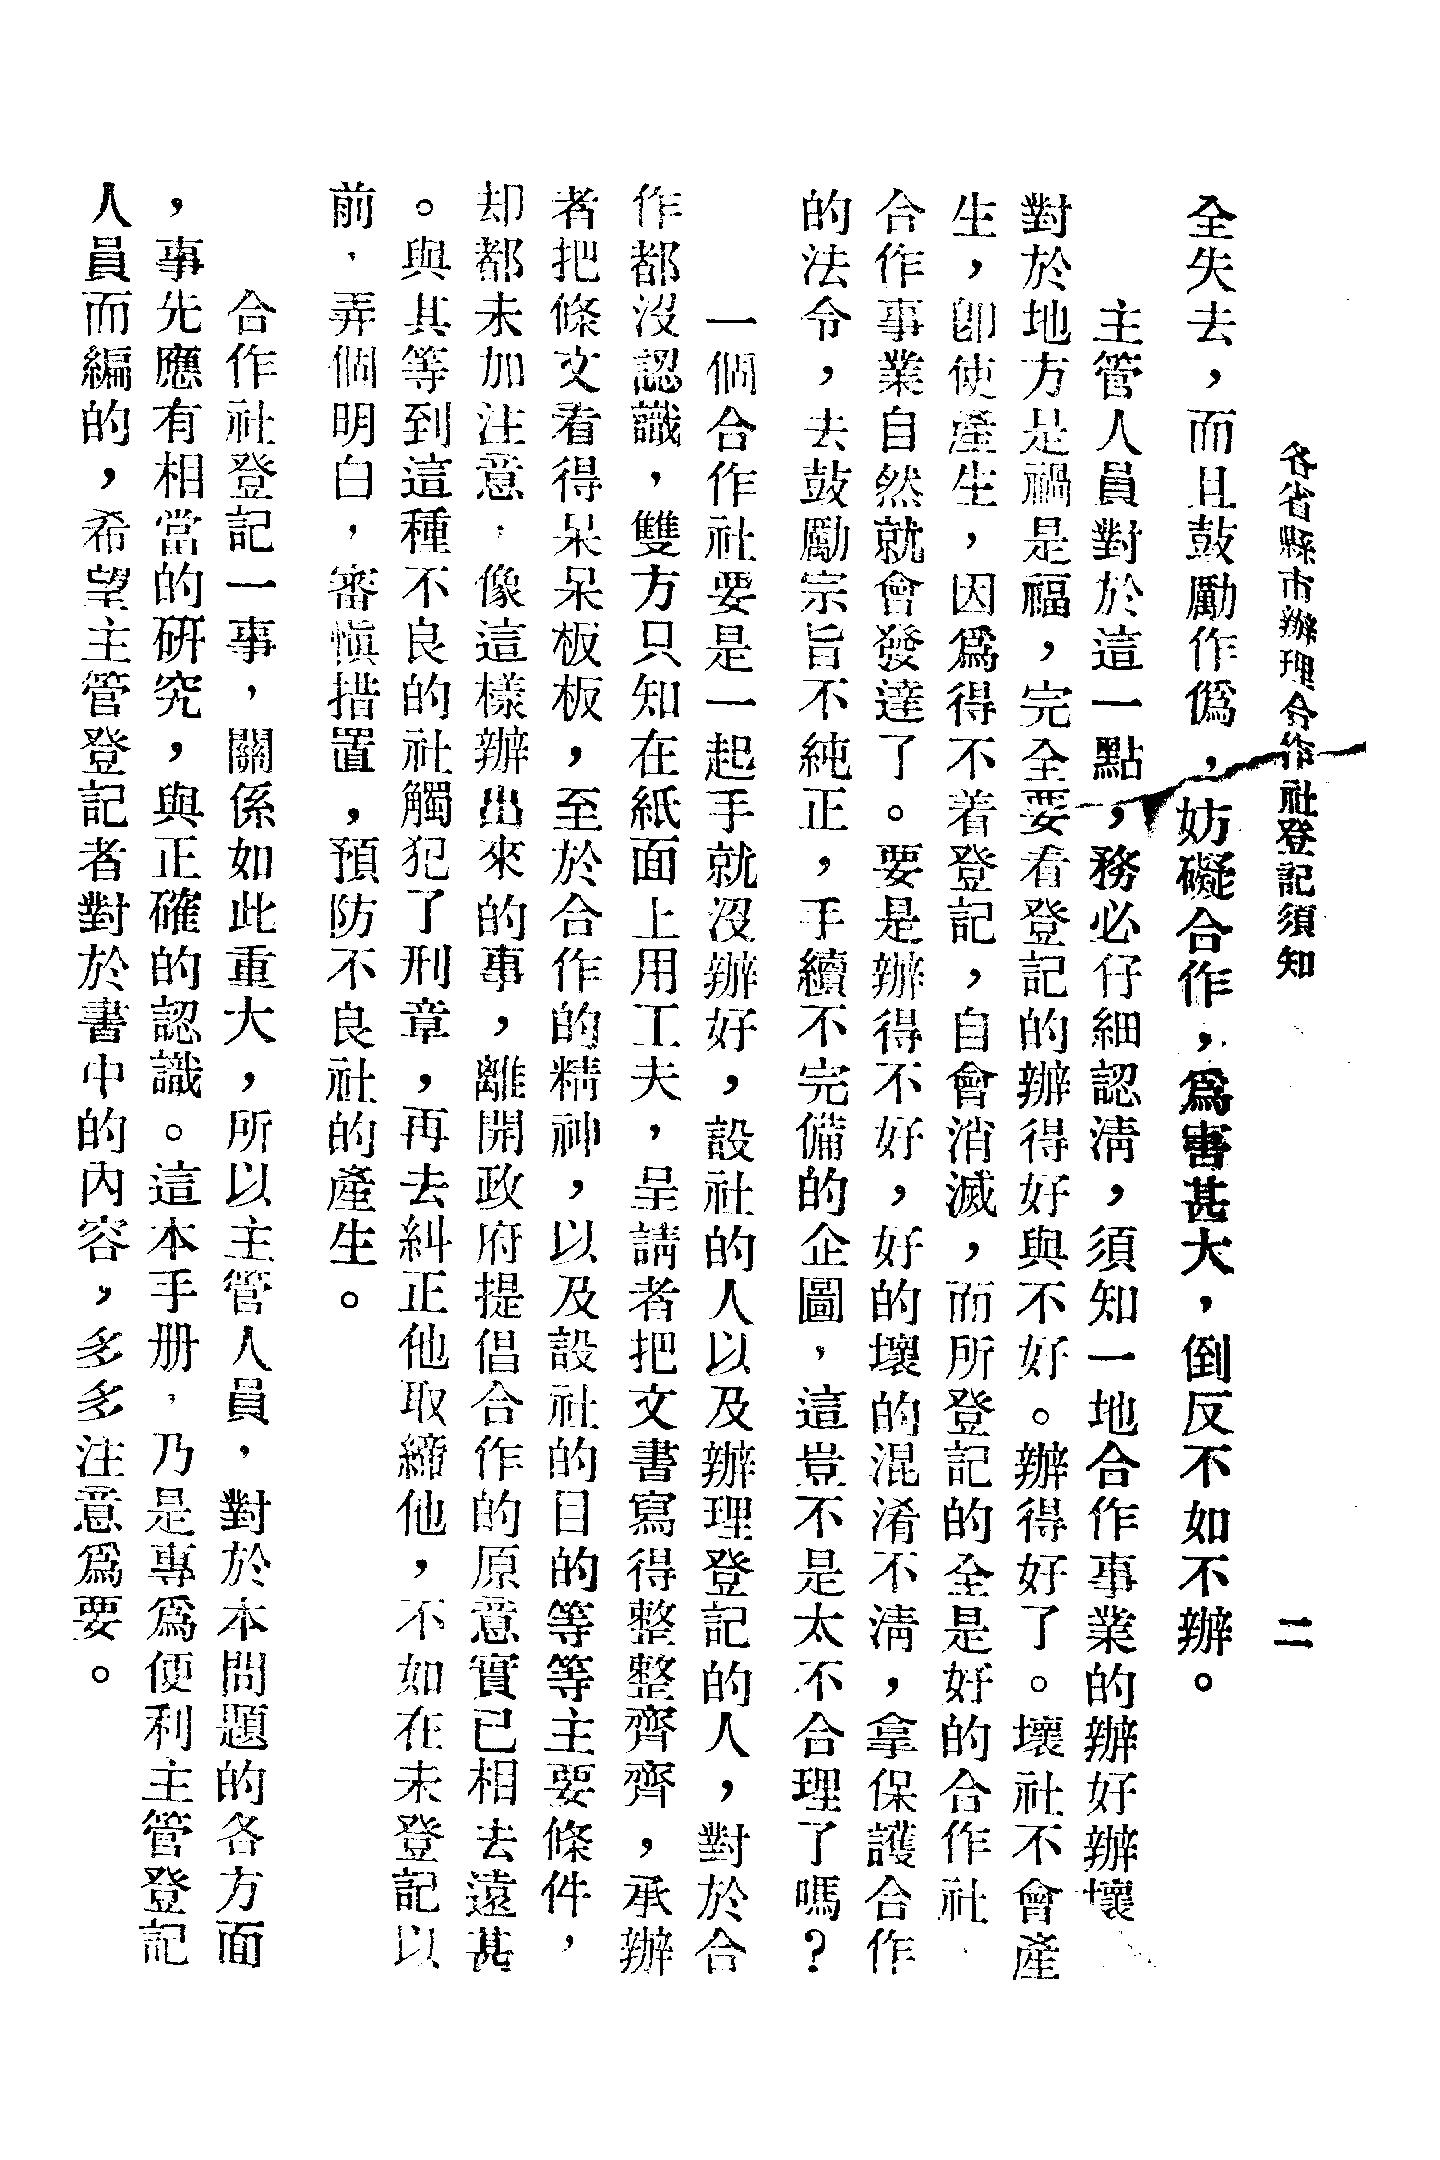 各省縣市辦理合作社登記須知
二
全失去，而且鼓勵作僞，妨礙合作，爲害甚大，倒反不如不辦。
主管人員對於這一點，務必仔細認淸，須知一地合作事業的辦好辦壞
對於地方是禍是福，完全要看登記的辦得好與不好。辦得好了。壞社不會產
生，卽使產生，因爲得不着登記，自會消滅，而所登記的全是好的合作社
合作事業自然就會發達了。要是辦得不好，好的壞的混淆不淸，拿保護合作
的法令，去鼓勵宗旨不純正，手續不完備的企圖，這豈不是太不合理了嗎？
一個合作社要是一起手就沒辦好，設社的人以及辦理登記的人，對於合
作都沒認識，雙方只知在紙面上用工夫，呈請者把文書寫得整整齊齊，承辦
者把條文看得呆呆板板，至於合作的精神，以及設社的目的等等主要條件，
却都未加注意，像這樣辦出來的事，離開政府提倡合作的原意實已相去遠甚
。與其等到這種不良的社觸犯了刑章，再去糾正他取締他，不如在未登記以
前，弄個明白，審愼措置，預防不良社的產生。
合作社登記一事，關係如此重大，所以主管人員，對於本問題的各方面
，事先應有相當的硏究，與正確的認識。這本手册，乃是專爲便利主管登記
人員而編的，希望主管登記者對於書中的內容，多多注意爲要。